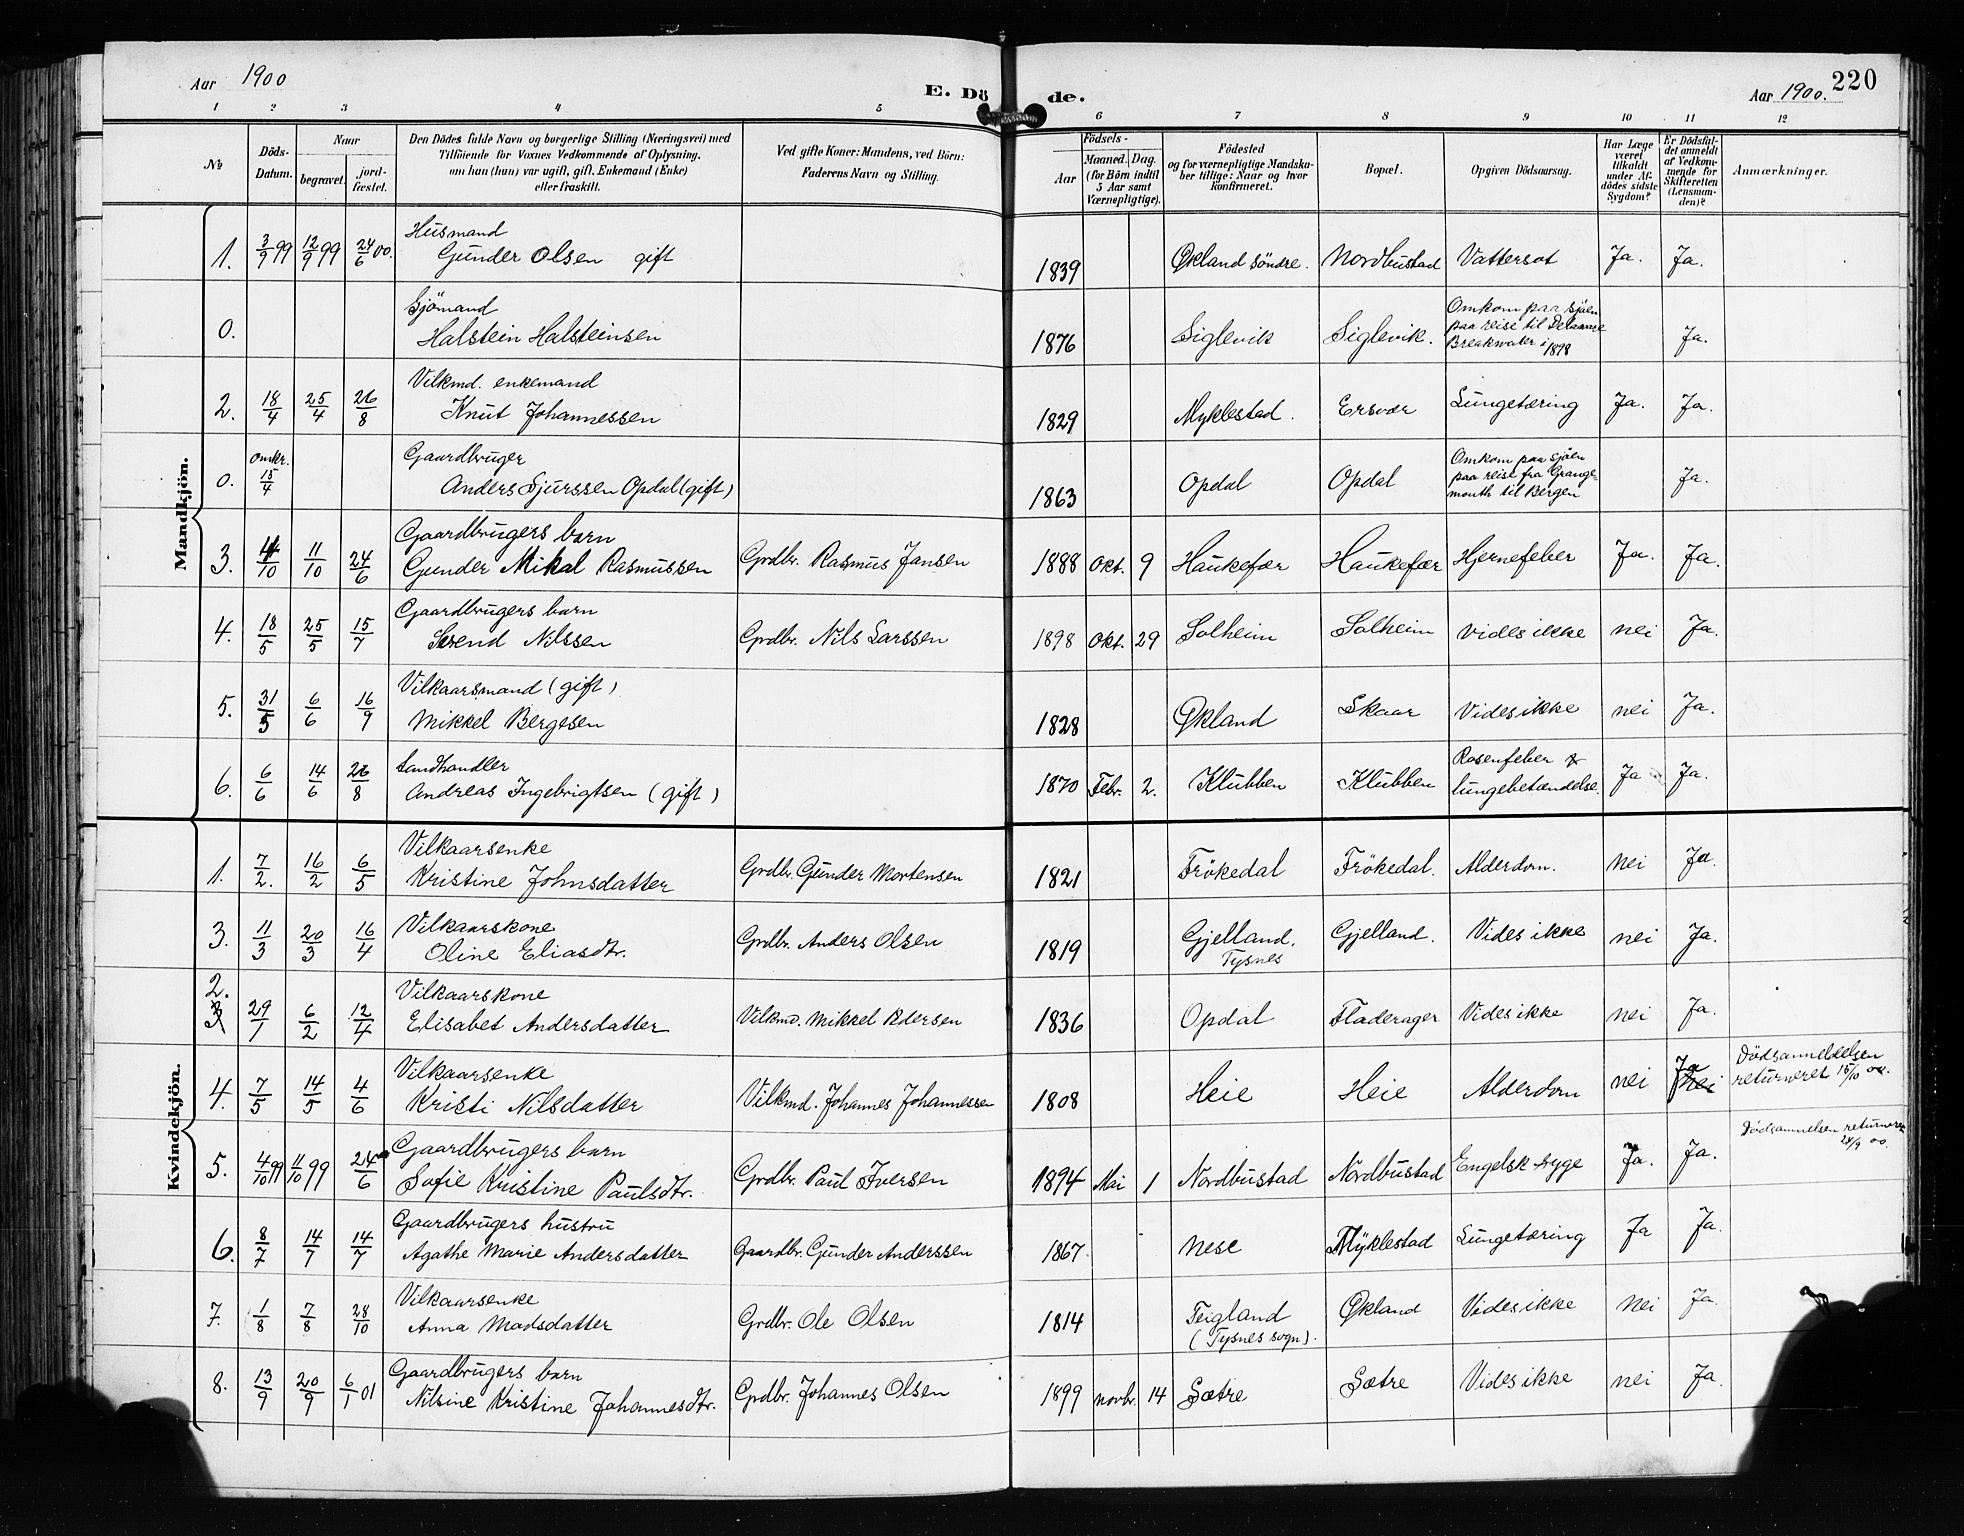 Aar 1900
E. Dö de.
Aar 1900. 220
1 2 3 4 5 6 7 8 9 10 11 12
No
Döds-Datum.
Naar
begravet.
jordfæstet.
Den Dödes fulde Navn og borgerlige Stilling (Næringsvei) med
Tilföiende for Voxnes Vedkommende af Oplysning.
om han (hun) var ugift, gift, Enkemand (Enke)
eller fraskilt.
Ved gifte Koner: Mandens, ved Börn:
Faderens Navn og Stilling.
Födsels-
Aar
Maaned. Dag.
(for Börn indtil
5 Aar samt
Værnepligtige).
Födested
og for værnepligtige Mandska-
ber tillige: Naar og hvor
konfirmeret.
Bopæl.
Opgiven Dödsaarsag.
Har Læge
været
tilkaldt
under Af-
dödes sidste
Sygdom?
Er Dödsfal-
det anmeldt
af Vedkom-
mende for
Skifteretten
(Lensman-
den)?
Anmærkninger.
Mandkjön.
1. 3/9 99 12/9 99 24/6 00. Husmand
Gunder Olsen gift 1839 Økland söndre. Nordbustad Vattersot Ja. Ja.
0. Sjömand
Halstein Halsteinsen 1876 Siglevik Siglevik. Omkom paa sjöen
paa reise til Delaware
Breakwater i 1898 Ja.
2. 18/4 25/4 26/8 Vilkmd. enkemand
Knut Johannessen 1829 Myklestad. Ersvær Lungetæring Ja. Ja.
0. omkr. 15/4 Gaardbruger
Anders Sjurssen Opdal (gift) 1863 Opdal Opdal Omkom paa sjöen
paa reise fra Grange-
mouth til Bergen Ja.
3. 4/10 11/10 24/6 Gaardbrugers barn
Gunder Mikal Rasmussen Grdbr. Rasmus Jansen 1888 Okt. 9 Haukefær Haukefær Hjernefeber Ja. Ja.
4. 18/5 25/5 15/7 Gaardbrugers barn
Svend Nilssen Grdbr. Nils Larssen 1898 Okt. 29 Solheim Solheim Vides ikke nei Ja.
5. 31/5 6/6 16/9 Vilkaarsmand (gift)
Mikkel Bergesen 1828 Økland Skaar Vides ikke nei Ja.
6. 6/6 14/6 26/8 Landhandler
Andreas Ingebrigtsen (gift) 1870 Febr. 2. Klubben Klubben Rosenfeber &
lungebetændelse. Ja Ja.
Kvindekjön.
1. 7/2. 16/2 6/5 Vilkaarsenke
Kristine Johnsdatter Grdbr. Gunder Mortensen 1821 Frökedal Frökedal. Alderdom. nei Ja.
3. 11/3 20/3 16/4 Vilkaarskone
Oline Eliasdtr. Grdbr. Anders Olsen 1819 Gjelland.
Tysnes Gjelland. Vides ikke nei Ja.
2. 3 29/1 6/2 12/4 Vilkaarskone
Elisabet Andersdatter Vilkmd. Mikkel Pedersen 1836 Opdal Fladerager Vides ikke nei Ja.
4. 7/5 14/5 4/6 Vilkaarsenke
Kristi Nilsdatter Vilkmd. Johannes Johannessen 1808 Heie Heie Alderdom nei Ja nei Dödsanmeldelsen
returneret 15/10 00.
5. 4/10 99 11/10 99 24/6 Gaardbrugers barn
Sofie Kristine Paulsdtr. Grdbr. Paul Iversen 1894 Mai 1 Nordbustad Nordbustad Engelsk syge Ja. Ja. Dödsanmelsen returneret
24/9 00.
6. 8/7 14/7 14/7 Gaardbrugers hustru
Agathe Marie Andersdatter Gaardbr. Gunder Anderssen 1867 Nese Myklestad Lungetæring Ja Ja.
7. 1/8 7/8 28/10 Vilkaarsenke
Anna Madsdatter Grdbr. Ole Olsen 1814 Teigland
(Tysnes sogn). Økland Vides ikke nei Ja.
8. 13/9 20/9 6/1 01 Gaardbrugers barn
Nilsine Kristine Johannesdtr. Grdbr. Johannes Olsen 1899 novbr. 14 Sætre Sætre Vides ikke nei Ja.